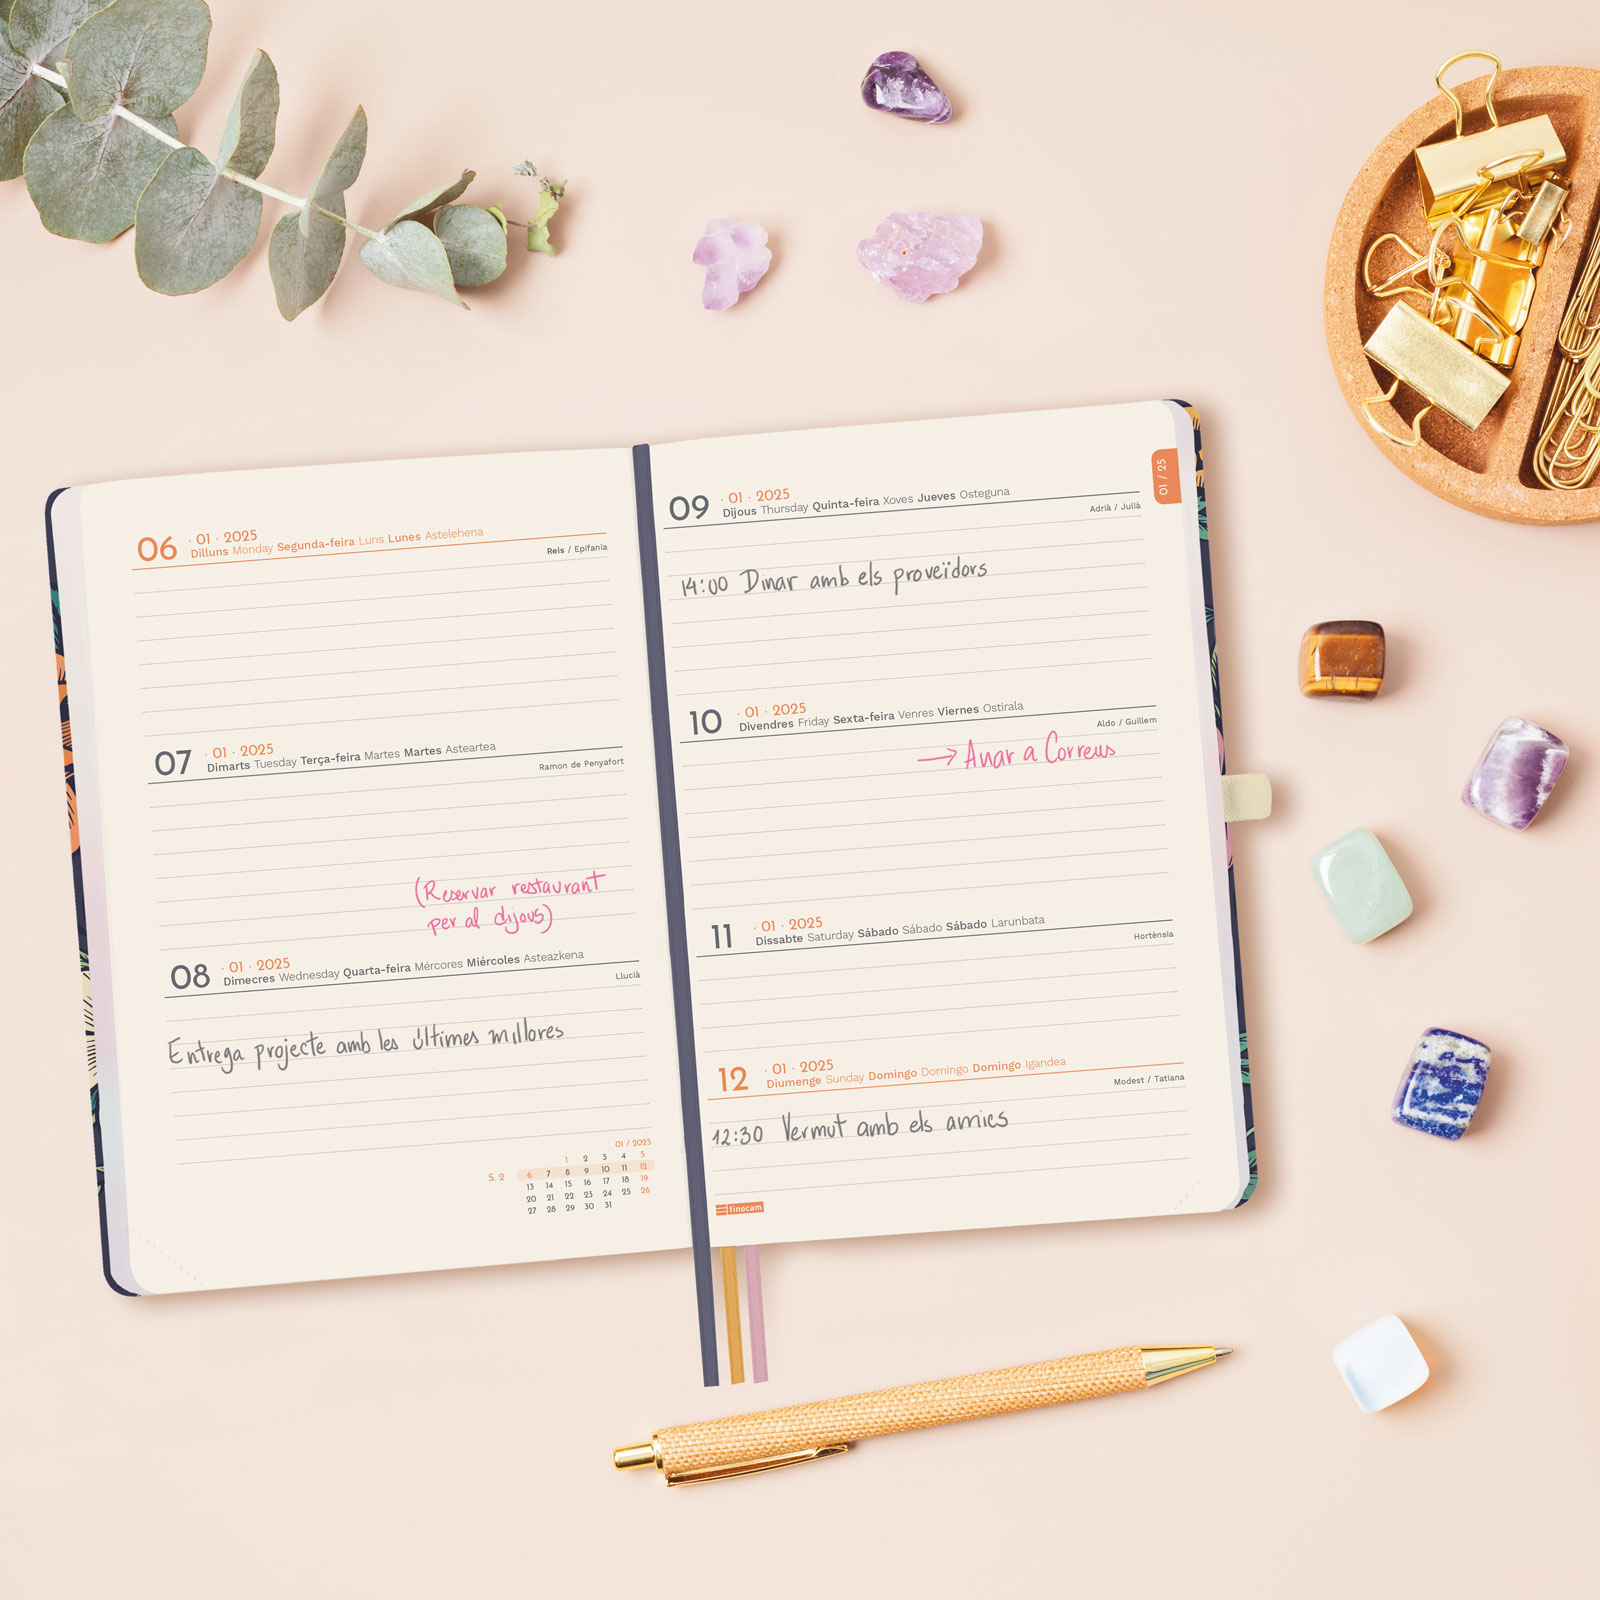 06 · 01 · 2025
Dilluns Monday Segunda-feira Luns Lunes Astelehena
Reis / Epifania
07 · 01 · 2025
Dimarts Tuesday Terça-feira Martes Martes Asteartea
Ramon de Penyafort
(Reservar restaurant
per al dijous)
08 · 01 · 2025
Dimecres Wednesday Quarta-feira Mércores Miércoles Asteazkena
Llucià
Entrega projecte amb les últimes millores
01 / 2025
1 2 3 4 5
S. 2 6 7 8 9 10 11 12
13 14 15 16 17 18 19
20 21 22 23 24 25 26
27 28 29 30 31
01 / 25
09 · 01 · 2025
Dijous Thursday Quinta-feira Xoves Jueves Osteguna
Adrià / Julià
14:00 Dinar amb els proveïdors
10 · 01 · 2025
Divendres Friday Sexta-feira Venres Viernes Ostirala
Aldo / Guillem
→ Anar a Correus
11 · 01 · 2025
Dissabte Saturday Sábado Sábado Sábado Larunbata
Hortènsia
12 · 01 · 2025
Diumenge Sunday Domingo Domingo Domingo Igandea
Modest / Tatiana
12:30 Vermut amb els amics
finocam